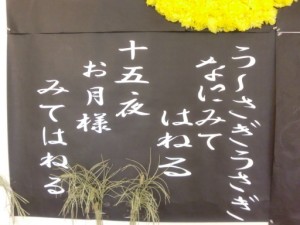 う〜さぎうさぎ
なにみて
はねる
十五夜
お月様
みてはねる